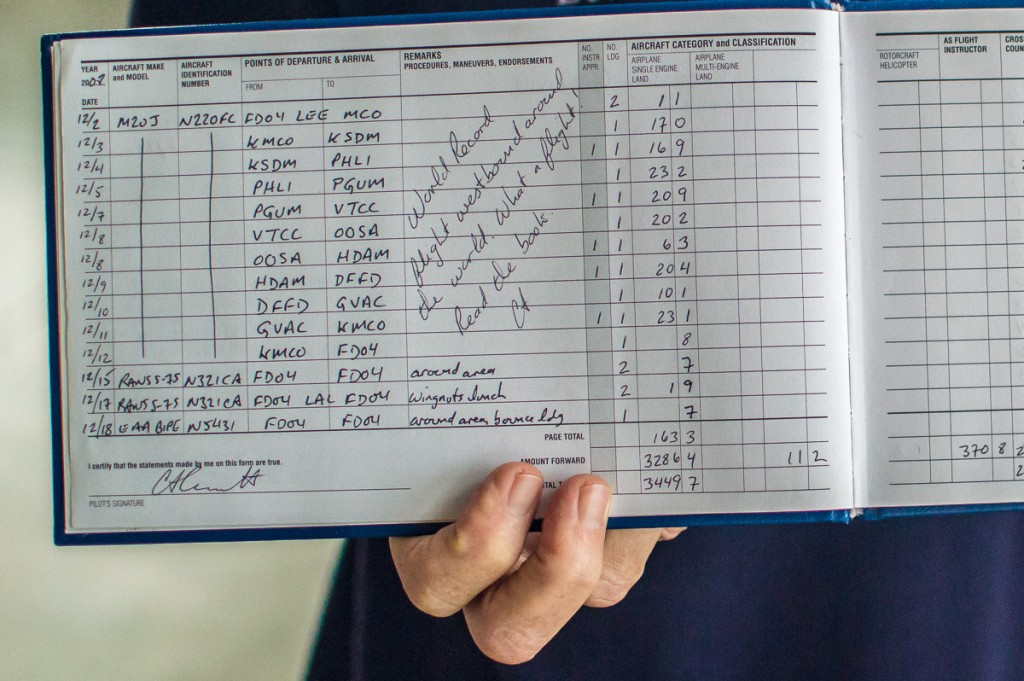 YEAR 2008 AIRCRAFT MAKE and MODEL AIRCRAFT IDENTIFICATION NUMBER POINTS OF DEPARTURE & ARRIVAL REMARKS PROCEDURES, MANEUVERS, ENDORSEMENTS NO. INSTR APPR. NO. LDG AIRCRAFT CATEGORY and CLASSIFICATION ROTORCRAFT HELICOPTER AS FLIGHT INSTRUCTOR
DATE FROM TO AIRPLANE SINGLE ENGINE LAND AIRPLANE MULTI-ENGINE LAND
12/2 M20J N220FC FD04 LEE MCO 2 1 1
12/3 KMCO KSDM 1 17 0
12/4 KSDM PHLI 1 1 16 9
12/5 PHLI PGUM 1 23 2
12/7 PGUM VTCC 1 1 20 9
12/8 VTCC OOSA 1 20 2
12/8 OOSA HDAM 1 1 6 3
12/9 HDAM DFFD 1 1 20 4
12/10 DFFD GVAC 1 10 1
12/11 GVAC KMCO 1 1 23 1
12/12 KMCO FD04 1 8
World Record
flight westbound around
the world. What a flight!
Read the book.
12/15 RANS S-7S N321CA FD04 FD04 around area 2 7
12/17 RANS S-7S N321CA FD04 LAL FD04 wingnots lunch 2 1 9
12/18 EAA BIPE N5431 FD04 FD04 around area, bounce ldg 1 7
PAGE TOTAL 163 3
I certify that the statements made by me on this form are true. AMOUNT FORWARD 3286 4 11 2 370 8
3449 7
PILOT'S SIGNATURE